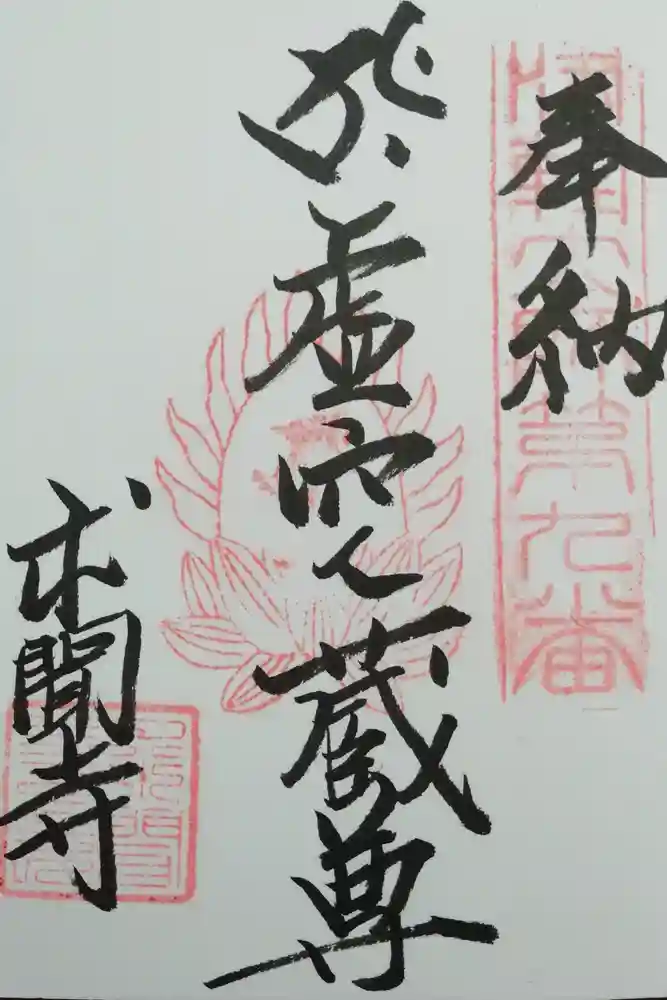 奉納
第九番
於虚空蔵尊
求聞寺